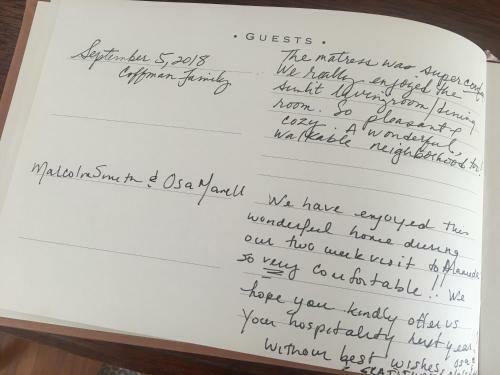 • GUESTS •
September 5, 2018
Coffman Family
The matress was super comfy
We really enjoyed the
sunlit livingroom/dining
room. So pleasant &
cozy. A wonderful,
walkable neighborhood, too!
Malcolm Smith & Osa Manell
We have enjoyed this
wonderful home during
our two week visit to Alameda
so very comfortable!! We
hope you kindly offer us
your hospitality next year!
Without best wishes,
& GRATITUDE